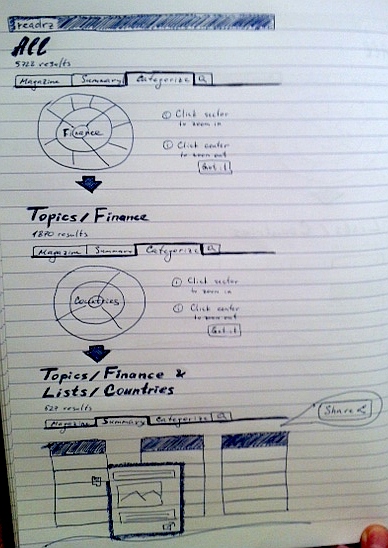 readrz
All
5728 results
Magazine Summary Categorize
Finance
① Click sector
to zoom in
① Click center
to zoom out
Got it
Topics/Finance
1870 results
Magazine Summary Categorize
Countries
① Click sector
to zoom in
① Click center
to zoom out
Got it
Topics/Finance &
Lists/Countries
527 results
Share
Magazine Summary Categorize